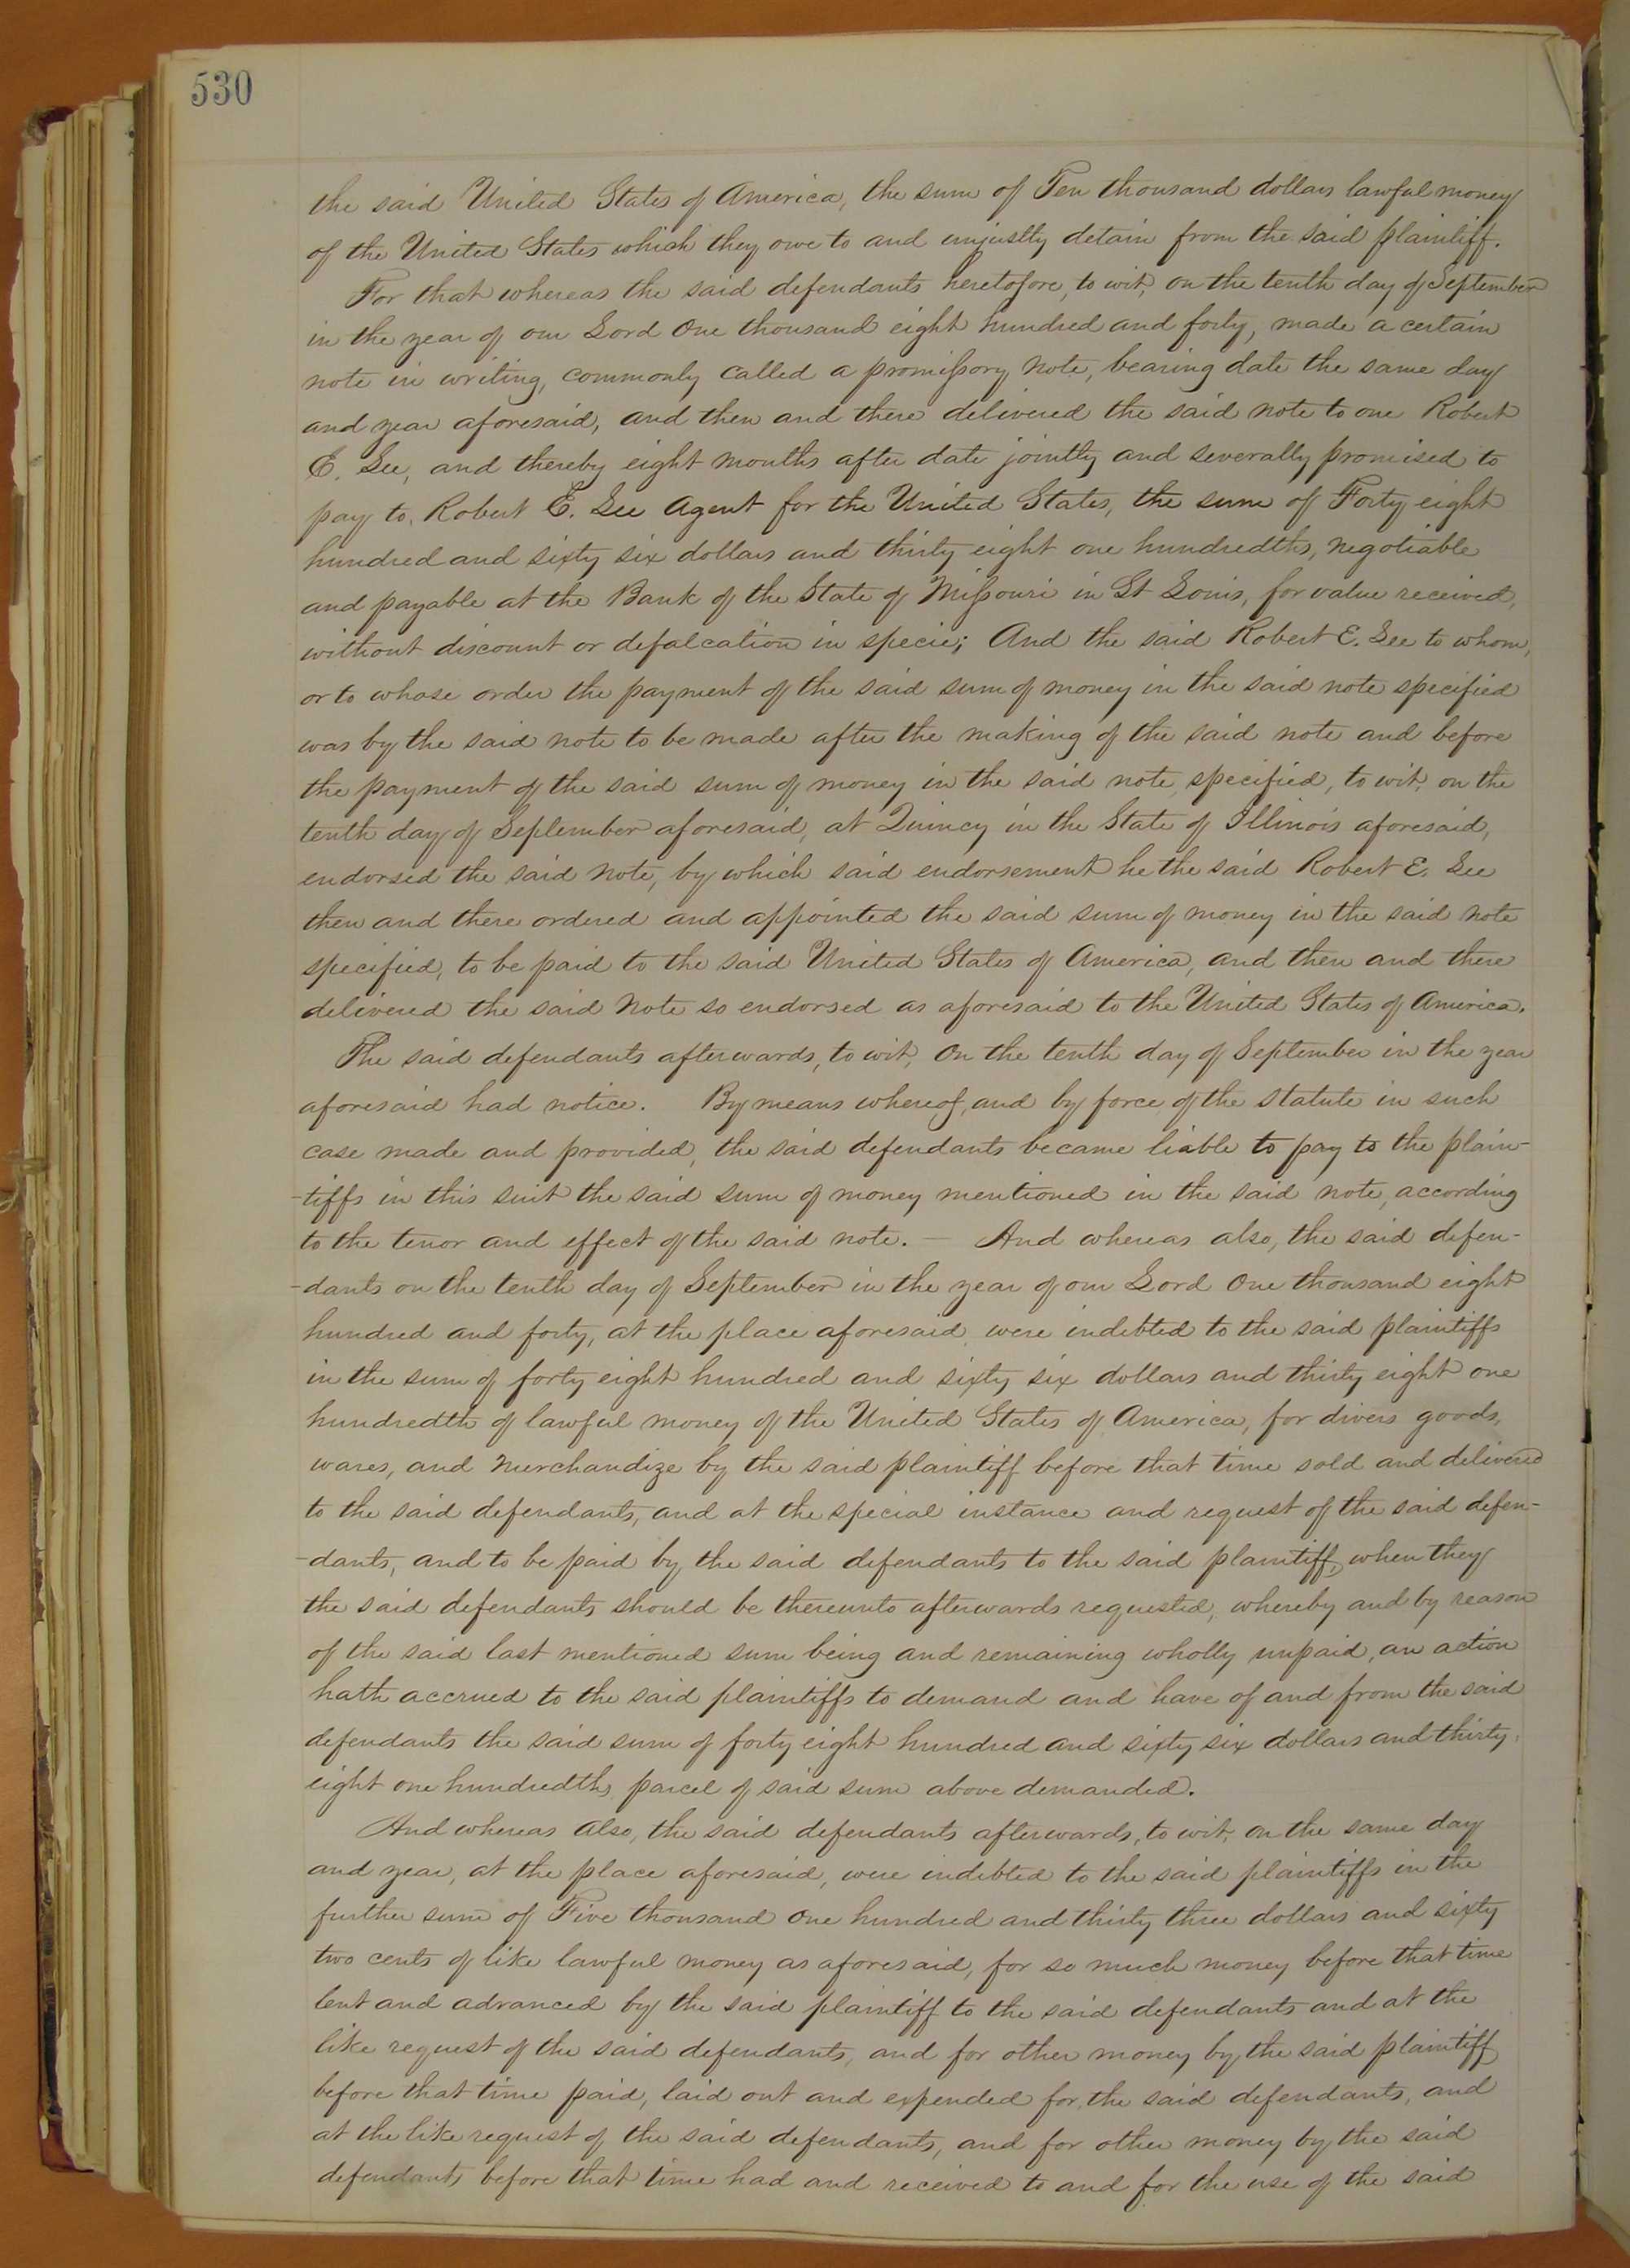 530
the said United States of America, the sum of Ten thousand dollars lawful money
of the United States which they owe to and unjustly detain from the said plaintiff.
For that whereas the said defendants heretofore, to wit, on the tenth day of September
in the year of our Lord One thousand eight hundred and forty, made a certain
note in writing, commonly called a promissory note, bearing date the same day
and year aforesaid, and then and there delivered the said note to one Robert
E. Lee, and thereby eight months after date jointly and severally promised to
pay to Robert E. Lee Agent for the United States, the sum of Forty eight
hundred and sixty six dollars and thirty eight one hundredths, negotiable
and payable at the Bank of the State of Missouri in St Louis, for value received,
without discount or defalcation in specie; And the said Robert E. Lee to whom,
or to whose order the payment of the said sum of money in the said note specified
was by the said note to be made after the making of the said note and before
the payment of the said sum of money in the said note specified, to wit, on the
tenth day of September aforesaid, at Quincy in the State of Illinois aforesaid,
endorsed the said note, by which said endorsement he the said Robert E. Lee
then and there ordered and appointed the said sum of money in the said note
specified, to be paid to the said United States of America, and then and there
delivered the said note so endorsed as aforesaid to the United States of America.
The said defendants afterwards, to wit, on the tenth day of September in the year
aforesaid had notice. By means whereof, and by force of the statute in such
case made and provided, the said defendants became liable to pay to the plain-
-tiffs in this suit the said sum of money mentioned in the said note, according
to the tenor and effect of the said note. — And whereas also, the said defen-
-dants on the tenth day of September in the year of our Lord One thousand eight
hundred and forty, at the place aforesaid were indebted to the said plaintiffs
in the sum of forty eight hundred and sixty six dollars and thirty eight one
hundredth of lawful money of the United States of America, for divers goods,
wares, and merchandize by the said plaintiff before that time sold and delivered
to the said defendants, and at the special instance and request of the said defen-
-dants, and to be paid by the said defendants to the said plaintiff, when they
the said defendants should be thereunto afterwards requested, whereby and by reason
of the said last mentioned sum being and remaining wholly unpaid, an action
hath accrued to the said plaintiffs to demand and have of and from the said
defendants the said sum of forty eight hundred and sixty six dollars and thirty
eight one hundredths, parcel of said sum above demanded.
And whereas also, the said defendants afterwards, to wit, on the same day
and year, at the place aforesaid, were indebted to the said plaintiffs in the
further sum of Five thousand one hundred and thirty three dollars and sixty
two cents of like lawful money as aforesaid, for so much money before that time
lent and advanced by the said plaintiff to the said defendants and at the
like request of the said defendants, and for other money by the said plaintiff
before that time paid, laid out and expended for the said defendants, and
at the like request of the said defendants, and for other money by the said
defendants before that time had and received to and for the use of the said